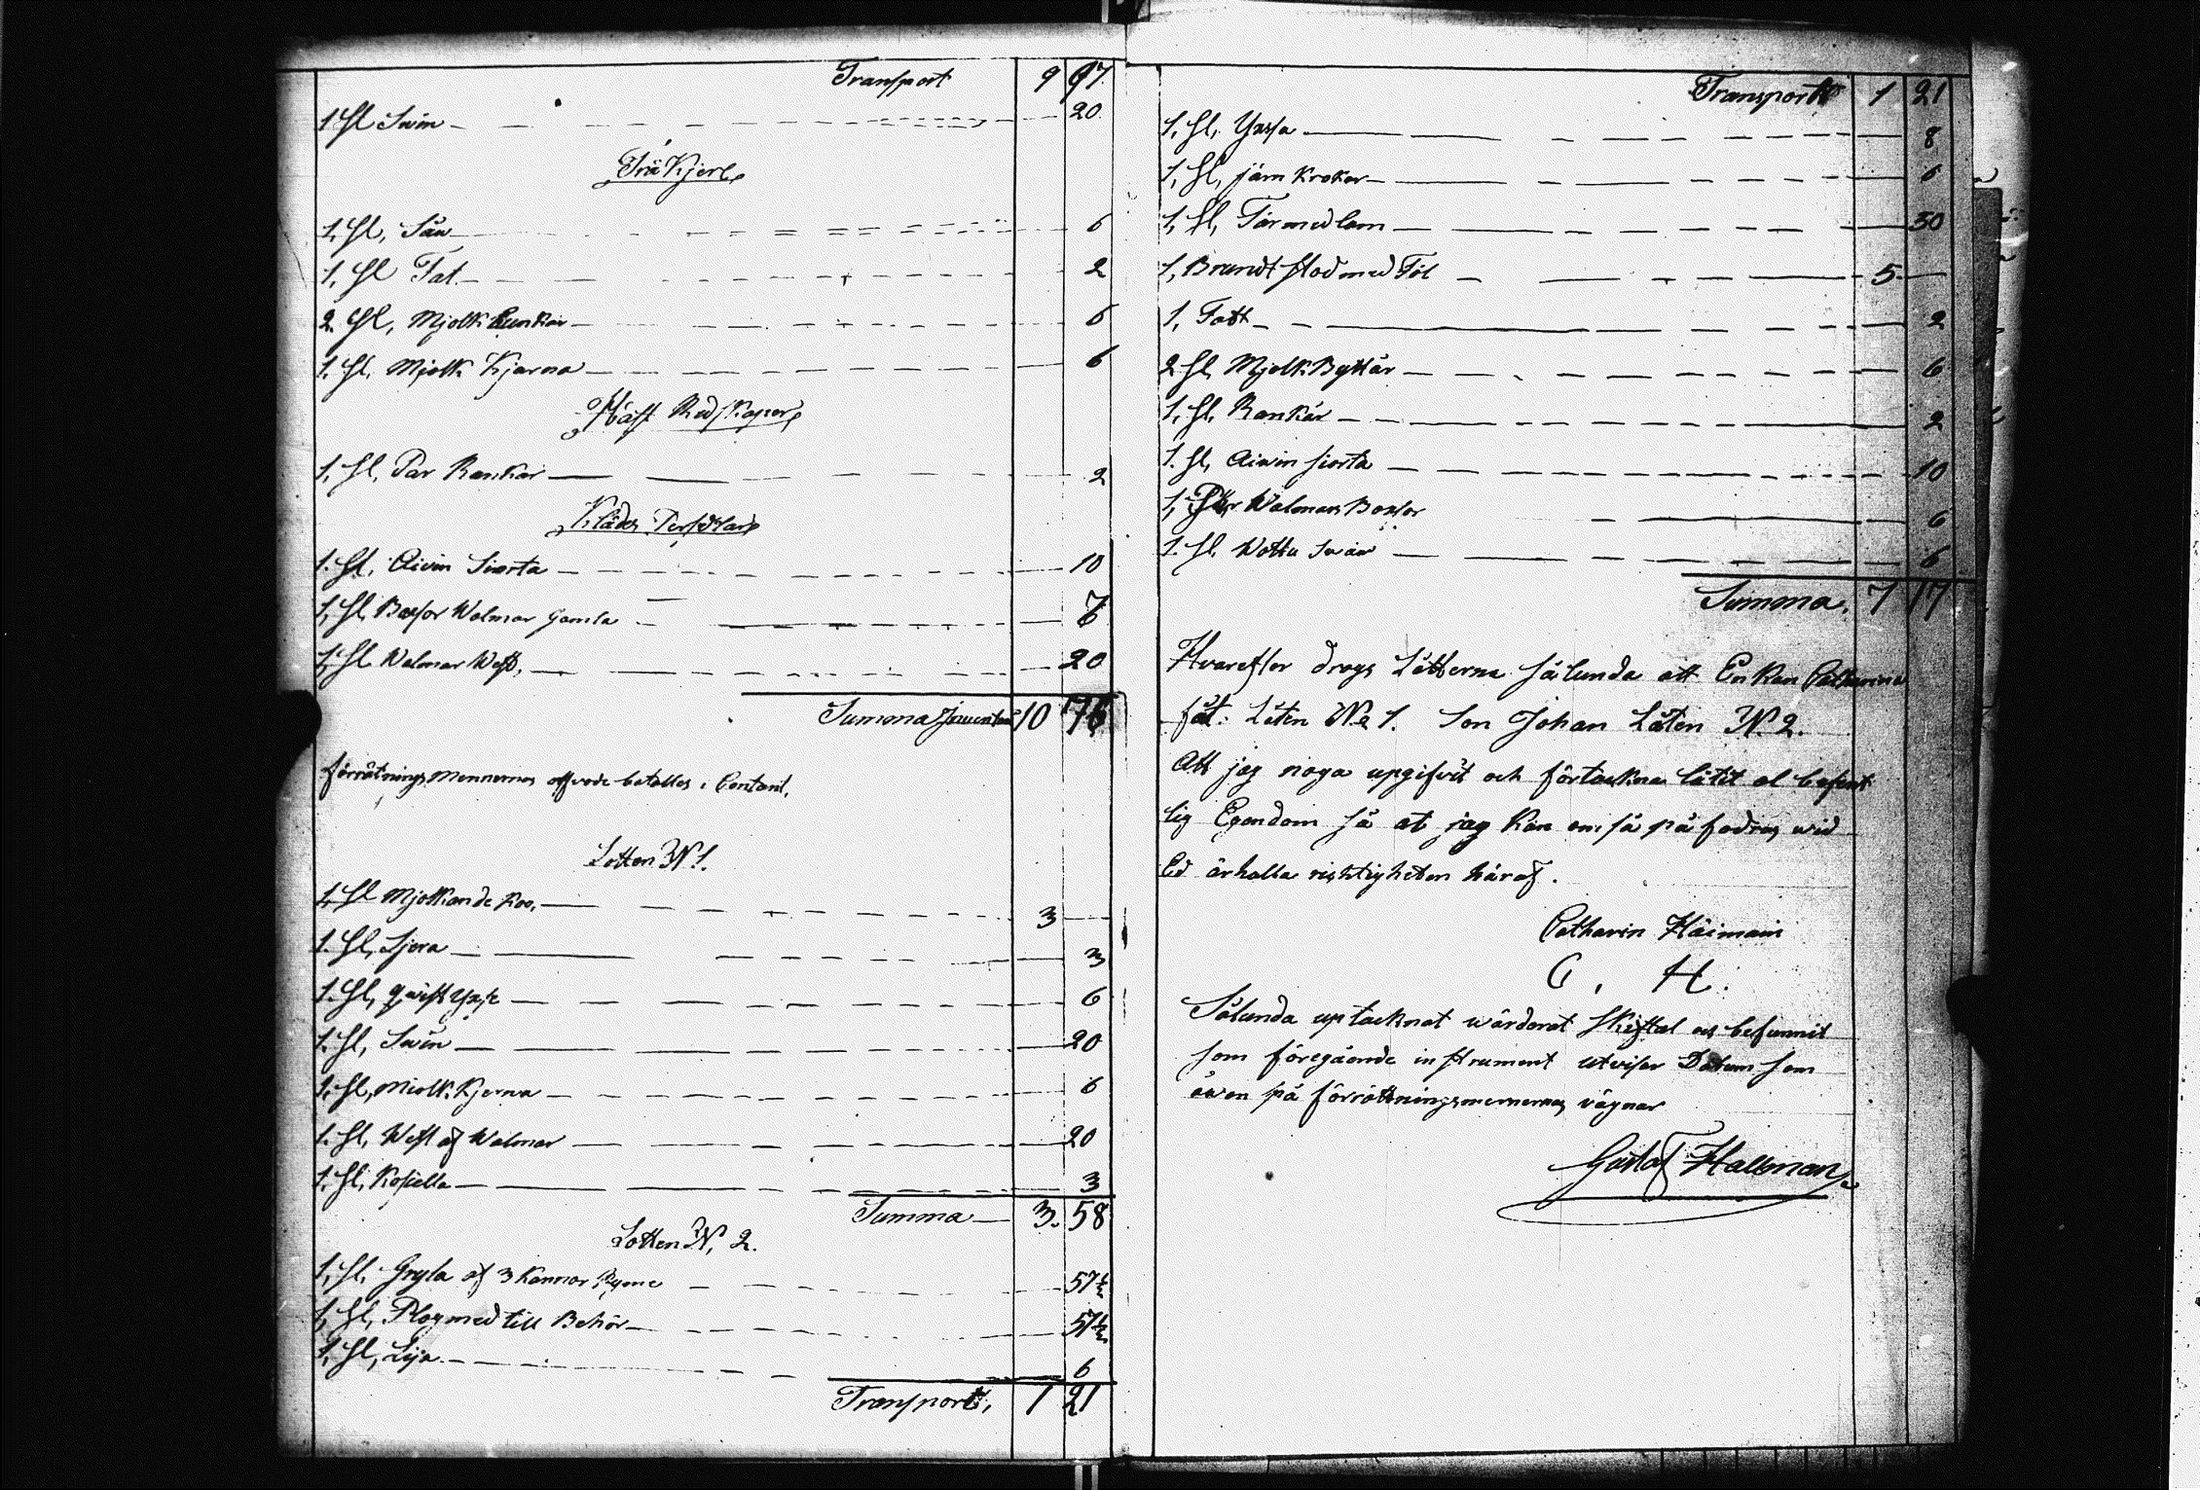 Transport 9 97
1 St Swin 20
Trä Kjerl
1, St, Såu 6
1, St Fat 2
2 St, Mjolk Bunkar 6
1, St, Mjolk Kjarna 6
Häst Redskaper
1, St, Par Rankar 2
Kläde Persedlar
1. St, Aivin Siorta 10
1, St Boxsor Walmar Gamla 6
1, St Walmar West, 20
Summa 10 76
förrätningsmennernas betalles i Contant.
Lotten N 1.
1, St Mjolkande Koo, 3
1. St, Sjera 3
1. St, qwist Yxe 6
1. St, Swin 20
1. St, Miolk Kjerna 6
1. St, West af Walmar 20
1. St, Koskella 3
Summa 3. 58
Lotten N, 2.
1, St, Gryta af 3 Kannor Ryme 57½
1, St, Plog med till Behör 57½
1, St, Lija 6
Transport, 1 21
Transport 1 21
1, St, Yxsa 8
1, St, järn Krokar 6
1, St, Får med lam 30
1, Brundt stod med Föl 5
1, Fatt 2
2 St, Mjolk Byttår 6
1, St, Rankår 2
1. St, Aiwin siorta 10
1, Par Walmars Boxsor 6
1. St, Swin 6
Summa, 7 17
Hvarefter drogs Lotterna sålunda att Enkan Catharina
fåt: Låten No 1. Son Johan Låten N. 2.
Att jag noga upgifvit och förtackna låtit al befint
lig Egendom så at jag Kan om så på fodras wid
Ed ärhalla rightigheten häraf.
Catharin Häimain
C. H.
Sålunda uptacknat wärderat Skiftat och befunnit
som föregående instrument utviser Datum som
åwen på förrättningsmennernas vägnar
Gustaf Hallman